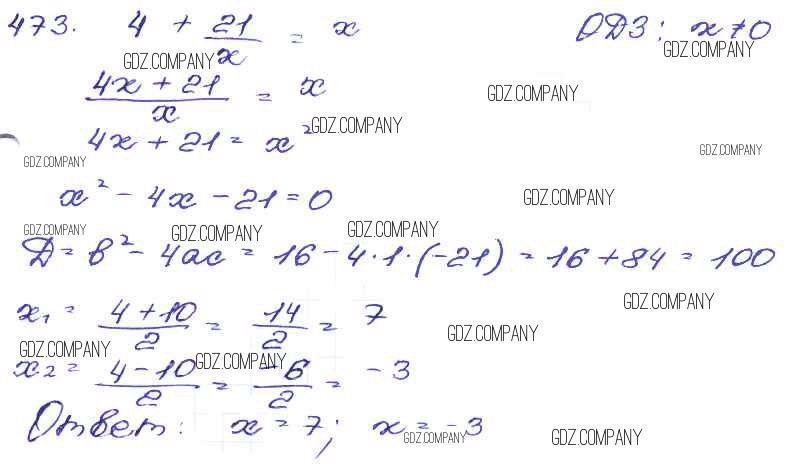 473. 4 + 21/x = x ОДЗ: x ≠ 0
GDZ.COMPANY GDZ.COMPANY
(4x + 21)/x = x GDZ.COMPANY
4x + 21 = x² GDZ.COMPANY
GDZ.COMPANY GDZ.COMPANY
x² - 4x - 21 = 0 GDZ.COMPANY
GDZ.COMPANY GDZ.COMPANY GDZ.COMPANY
Д = b² - 4ac = 16 - 4·1·(-21) = 16 + 84 = 100
GDZ.COMPANY
x₁ = (4 + 10)/2 = 14/2 = 7
GDZ.COMPANY GDZ.COMPANY GDZ.COMPANY
x₂ = (4 - 10)/2 = -6/2 = -3
Ответ: x = 7; x = -3
GDZ.COMPANY GDZ.COMPANY